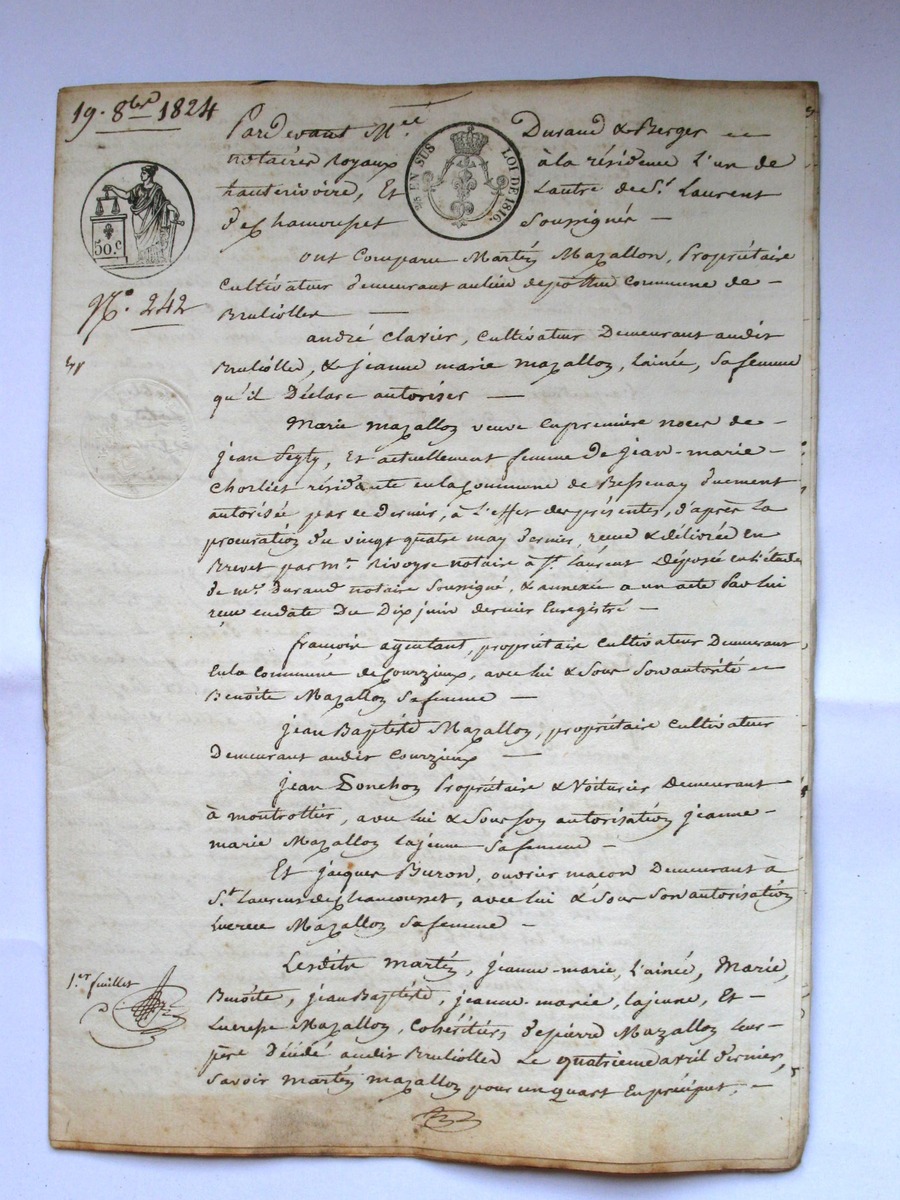 19. 8bre 1824
Pardevant Me. Durand & Berger
notaires royaux à la résidence L'un de
hauterivoire, Et Lautre de St. Laurent
de chamousset Soussignés
EN SUS LOI DE 1816.
50 c
ont Comparu Martin Mazallon, Propriétaire
Cultivateur demeurant au lieu de Commune de
Brullolles
No. 242
andré Clavier, Cultivateur Demeurant audit
Brullolles, & jeanne marie mazallon, Lainée, Sa femme
qu'il Déclare autoriser
Marie mazallon veuve En première noces de
jean Feyty, Et actuellement femme de jean-marie
Chorliet résidante en la Commune de Bessenay Duement
autorisée par ce dernier, à L'effet des présentes, d'après la
procuration du vingt quatre may dernier, reçue & délivrée en
Brevet par me. Rivoyre notaire à St. Laurent Déposée en L'étude
de me. Durand notaire Soussigné, & annexée a un acte Par lui
reçu en date Du Dix juin dernier Enregistré
françois agoutant, propriétaire Cultivateur Demeurant
En la Commune de Courzieux, avec lui & Sous Son autorité
Benoîte Mazallon Sa femme
jean Baptiste Mazallon, propriétaire Cultivateur
Demeurant audit Courzieux
jean Ponchon Propriétaire & Voiturier Demeurant
à montrottier, avec lui & Sous Son autorisation jeanne
marie Mazallon La jeune Sa femme
Et jacques Buron, ouvrier maçon Demeurant à
St. Laurent de chamousset, avec lui & Sous Son autorisation
Lucrece Mazallon Sa femme
Lesdits martin, jeanne-marie, L'ainée, Marie,
1.er feuillet
Benoîte, jean Baptiste, jeanne-marie, La jeune, Et
Lucresse Mazallon, Cohéritiers, de pierre Mazallon Leur
père Décédé audit Brullolles Le quatrieme avril dernier,
Savoir martin mazallon pour un quart En préciput,